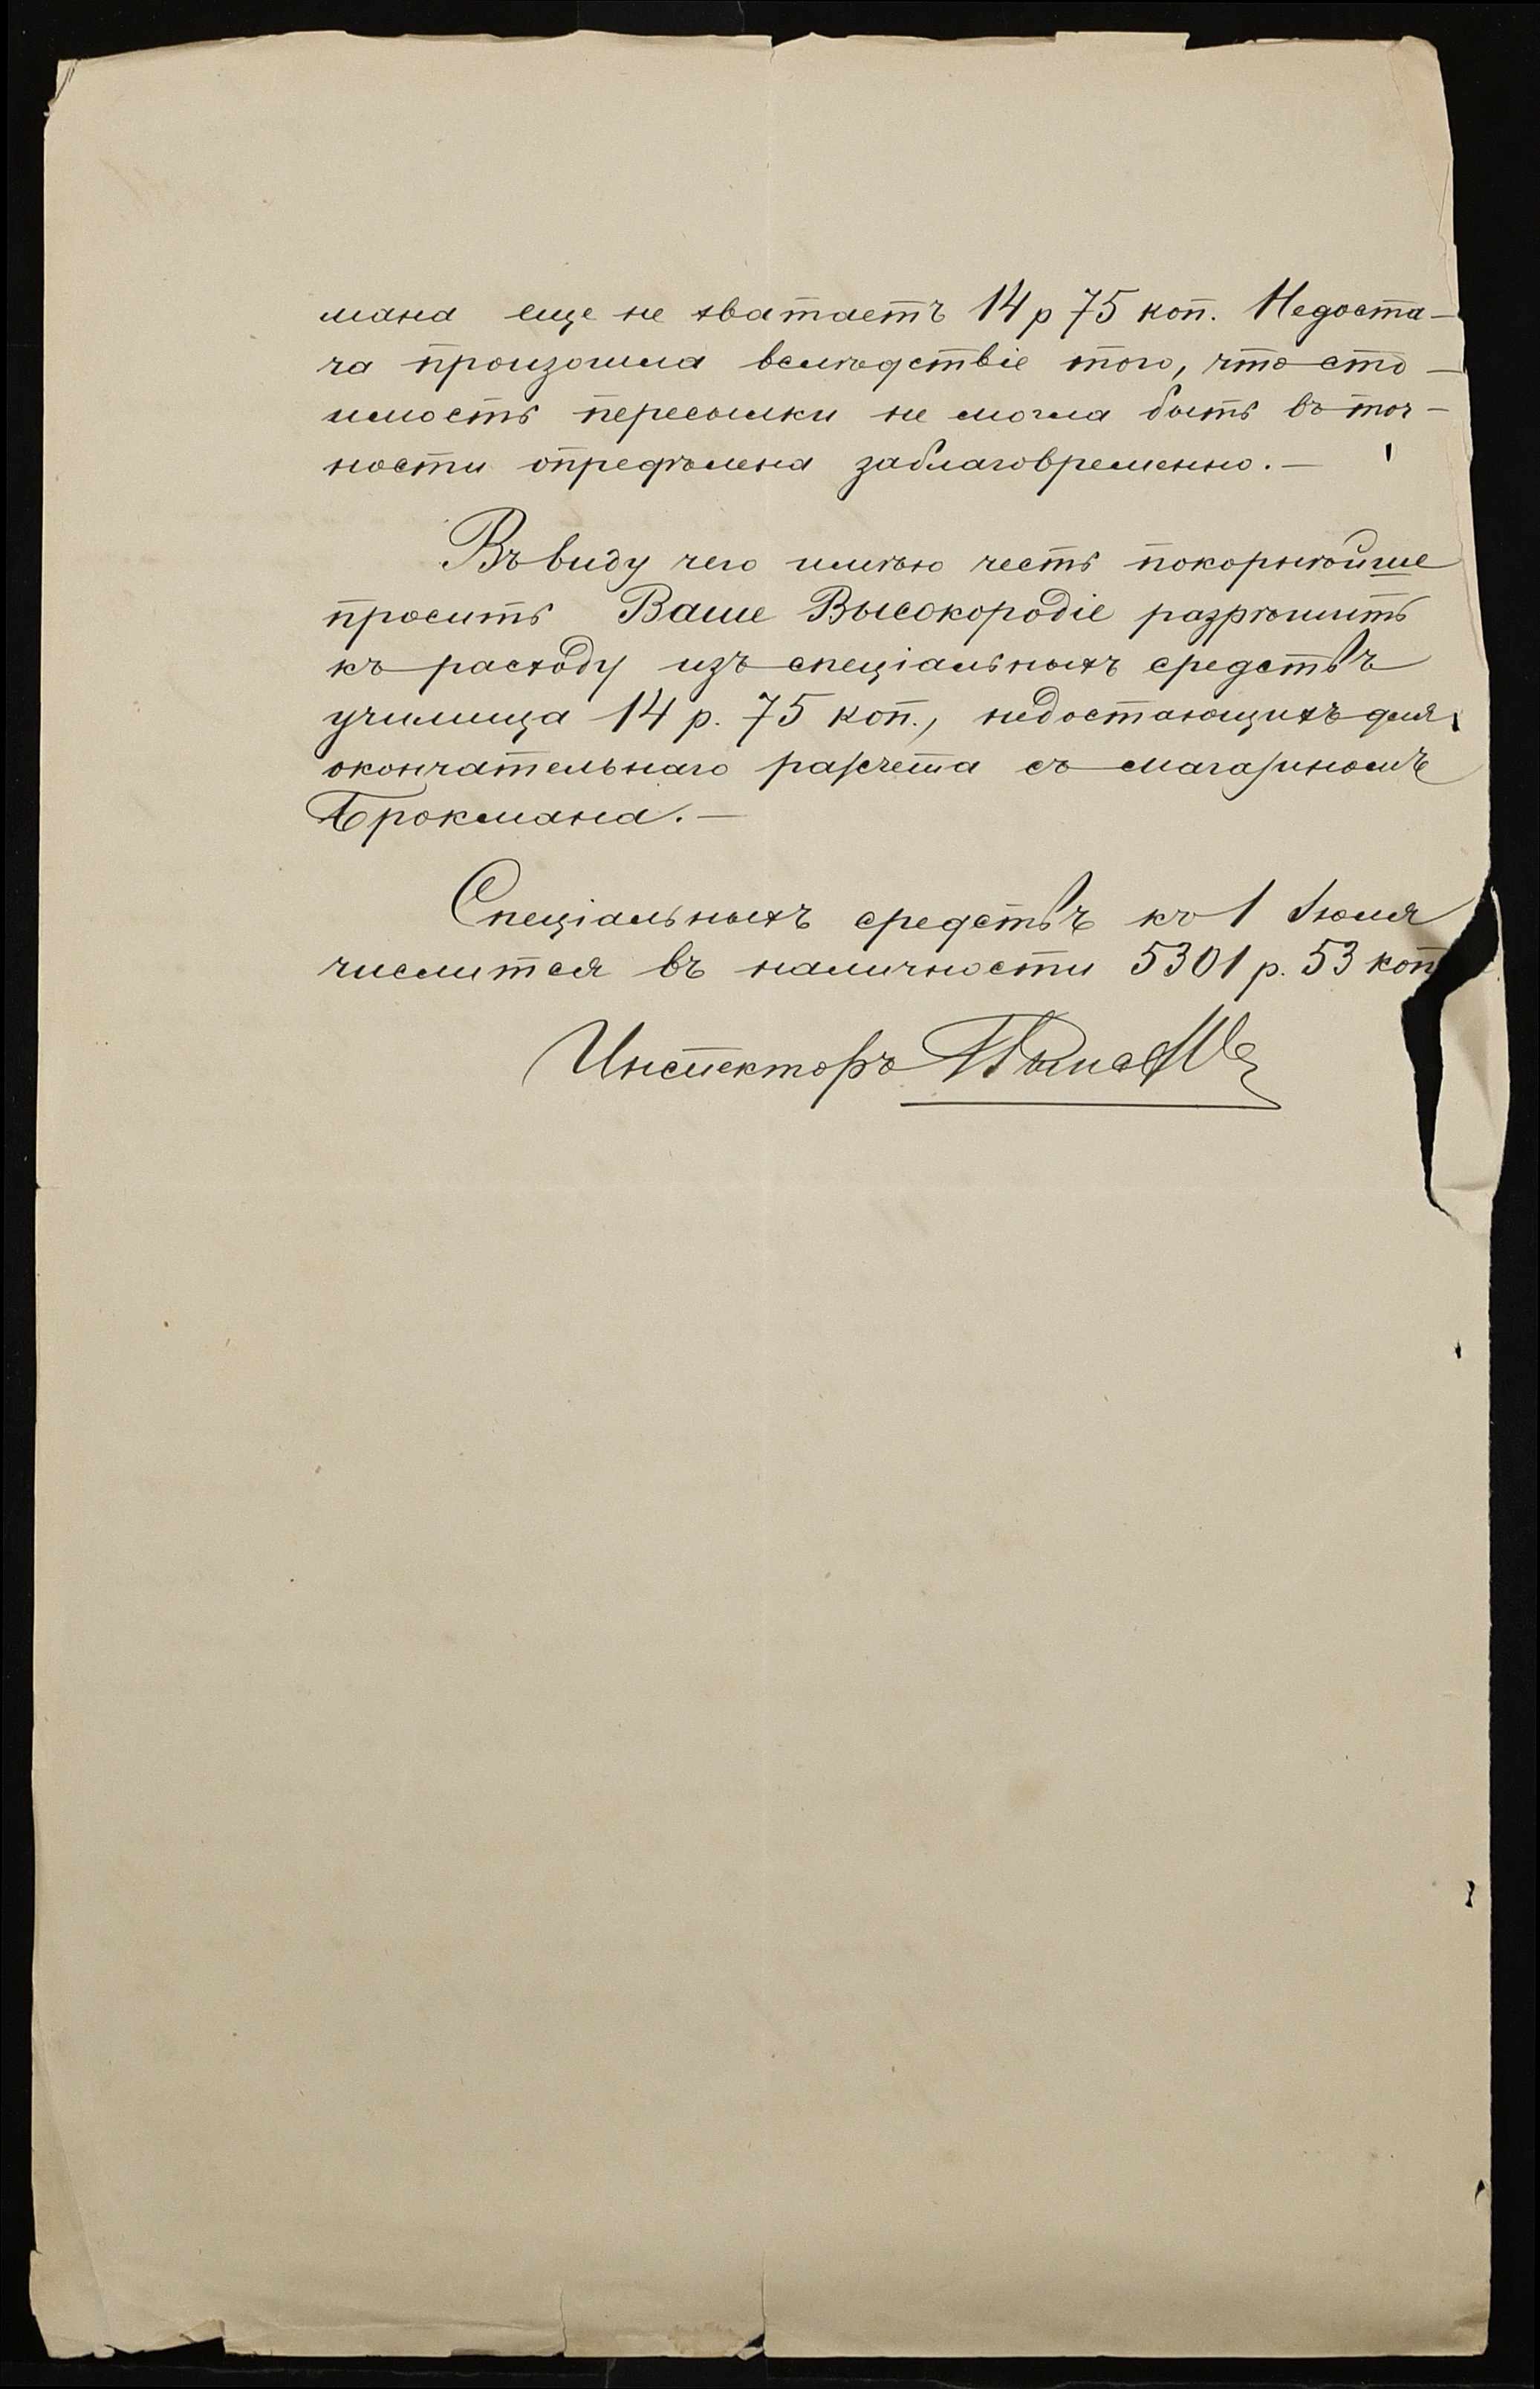 мана еще не хватаетъ 14 р 75 коп. Недоста-
ча произошла вслѣдствіе того, что сто-
имость пересылки не могла быть въ точ-
ности опредѣлена заблаговременно. —
Въ виду чего имѣю честь покорнѣйше
просить Ваше Высокородіе разрѣшить
къ расходу изъ спеціальныхъ средствъ
училища 14 р. 75 коп., недостающихъ для
окончательнаго разсчета съ магазиномъ
Брокмана. —
Спеціальныхъ средствъ къ 1 Іюля
числится въ наличности 5301 р. 53 коп
Инспекторъ